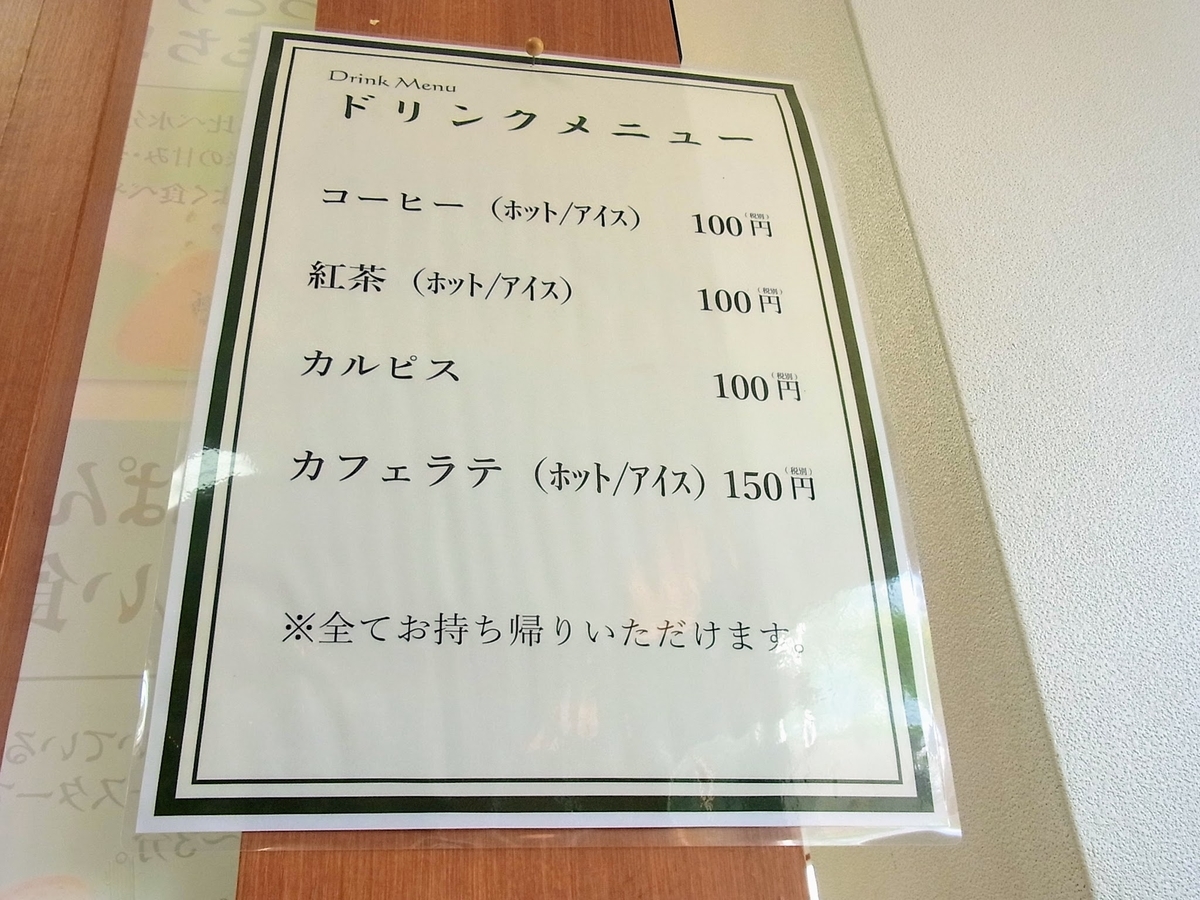 Drink Menu
ドリンクメニュー
コーヒー (ホット/アイス) 100円(税別)
紅茶 (ホット/アイス) 100円(税別)
カルピス 100円(税別)
カフェラテ (ホット/アイス) 150円(税別)
※全てお持ち帰りいただけます。